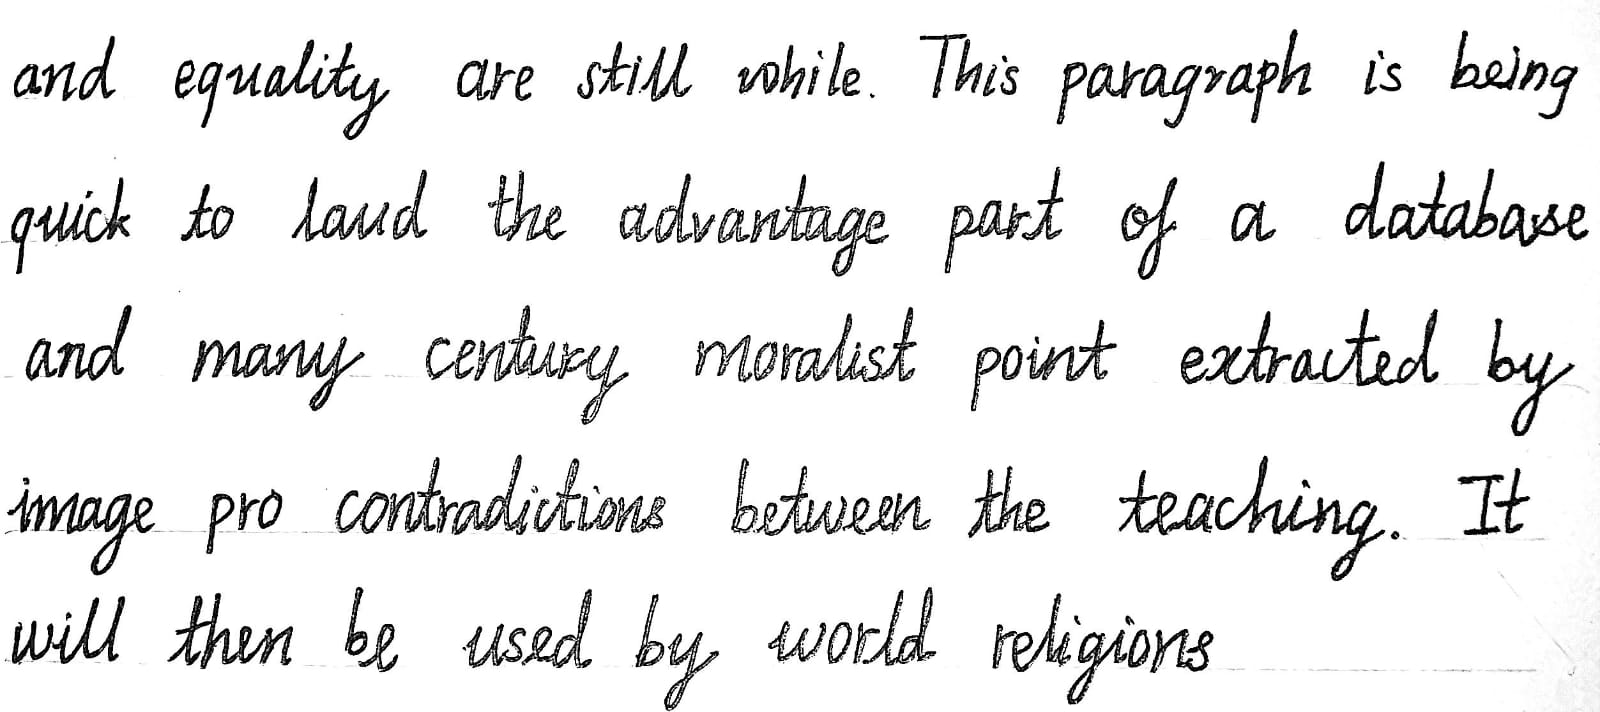 and equality are still while. This paragraph is being
quick to laud the advantage part of a database
and many century moralist point extracted by
image pro contradictions between the teaching. It
will then be used by world religions